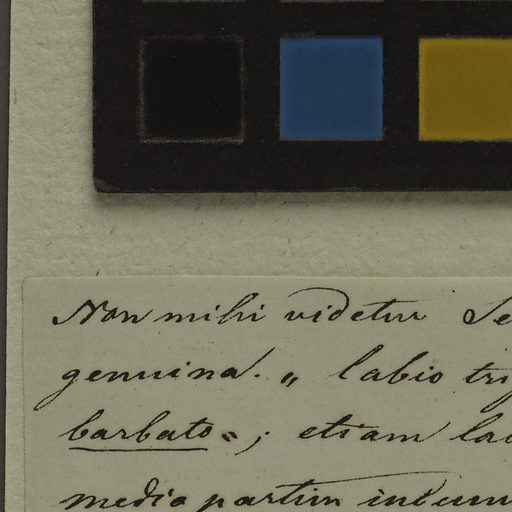 Non mihi videtur Se
genuina. „ labio tri
barbato"; etiam la
medio partim incum